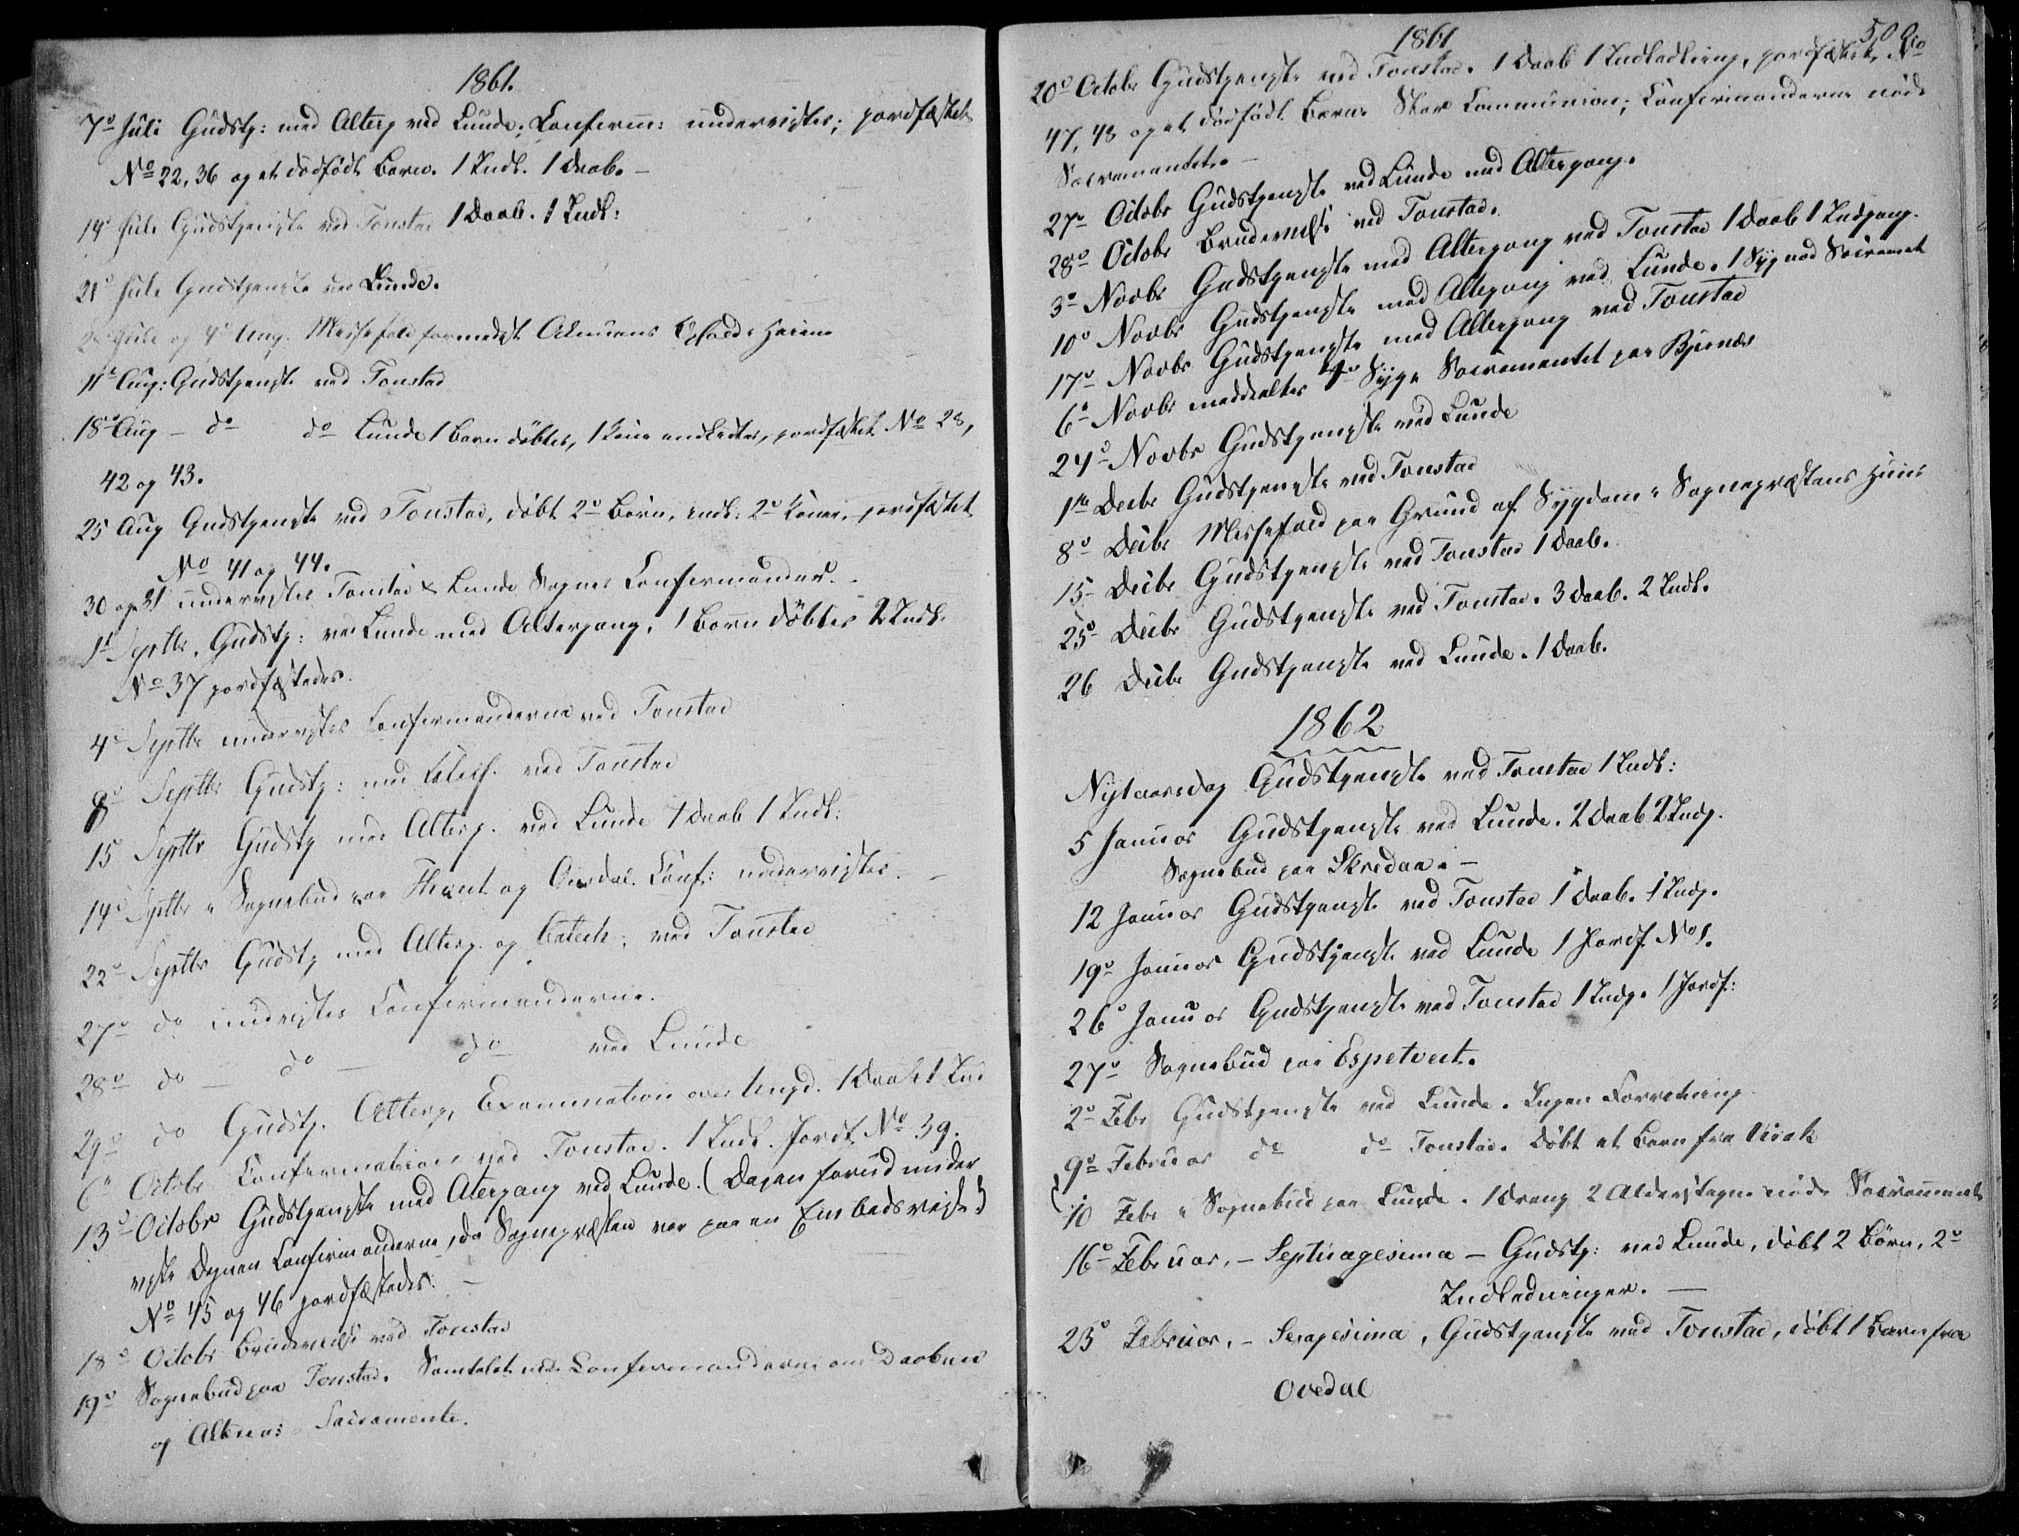 1861.
7de Juli Gudstj: med Alterg ved Lunde; Conferm: undervistes; jordfæstet
No 22, 36 og et dødfødt Barn. 1 Indl. 1 Daab. –
14de Juli Gudstjeneste ved Tonstad 1 Daab. 1 Indl:
21de Juli Gudstjeneste ved Lunde.
Juli og 4de Aug. Messefald formedelst
11te Aug: Gudstjeneste ved Tonstad
18de Aug – do do Lunde 1 Barn døbtes, 1 Kone indledtes, jordfæstet No 28,
42 og 43.
25 Aug Gudstjeneste ved Tonstad, døbt 2de Børn, indl: 2de Koner, jordfæstet
No 41 og 44.
30 og 31 undervistes Tonstad & Lunde Sognes Confirmander. –
1ste Septbr. Gudstj: ved Lunde med Altergang, 1 Barn døbtes 2 Indl.
No 37 jordfæstedes.
4de Septbr undervistes Confirmanderne ved Tonstad
8de Septbr Gudstj: med ved Tonstad
15 Septbr Gudstj med Alterg. ved Lunde 1 Daab 1 Indl:
19de Septbr Sognebud paa og Ousdal. Conf: undervistes. –
22de Septbr Gudstj med Alterg. og Catech: ved Tonstad
27de do undvistes Confirmanderne. –
28de do – do – do ved Lunde
29de do Gudstj. Alterg, Examination over Ungd. 1 Daab 1 Ind
6te Octobr Confirmation ved Tonstad. 1 Indl. Jordf. No 39.
13de Octobr Gudstjeneste med Atergang ved Lunde. (Dagen forud under
viste Degnen Confirmanderne, da Sognepræsten var paa en Embedsreise)
No 45 og 46 jordfæstedes. –
18de Octobr Brudevielse ved Tonstad
19de Sognebud paa Tonstad. Samtalet med Confirmanderne om Daabens
og Alterens Sacramente.
1861 500
20de Octobr Gudstjeneste ved Tonstad. 1 Daab 1 Indledning, jordfæstet No
47, 48 og et dødfødt Barn. Stor Communion; Confirmanderne nøde
Sacramentet. –
27de Octobr Gudstjeneste ved Lunde med Altergang.
28de Octobr Brudevielse ved Tonstad.
3de Novbr Gudstjeneste med Altergang ved Tonstad 1 Daab 1 Indgang.
10de Novbr Gudstjeneste med Altergang ved Lunde. 1 Syg nød Sacramet
17de Novbr Gudstjeneste med Altergang ved Tonstad
6te Novbr meddeeltes Syge Sacramentet paa Bjunæs
24de Novbr Gudstjeneste ved Lunde
1ste Decbr Gudstjeneste ved Tonstad
8de Decbr Messefald paa Grund af Sygdom i Sognepræstens Huus
15 Decbr Gudstjeneste ved Tonstad 1 Daab.
25de Decbr Gudstjeneste ved Tonstad. 3 Daab. 2 Indl.
26 Decbr Gudstjeneste ved Lunde. 1 Daab.
1862
Nytaarsdag Gudstjeneste ved Tonstad 1 Indl:
5 Januar Gudstjeneste ved Lunde. 2 Daab 2 Indg.
Sognebud paa Skredaa. –
12 Januar Gudstjeneste ved Tonstad 1 Daab. 1 Indg.
19de Januar Gudstjeneste ved Lunde 1 Jordf No 1.
26de Januar Gudstjeneste ved Tonstad 1 Indg. 1 Jordf:
27de Sognebud paa Espetveit.
2de Febr Gudstjeneste ved Lunde. Ingen Forretning.
9de Februar do do Tonstad. Døbt et Barn fra Virak
10 Febr Sognebud paa Lunde. 1 Dreng 2 Alderstegne nøde Sacrament
16de Februar. – Septuagesima – Gudstj: ved Lunde, døbt 2 Børn, 2de
Indledninger. –
23de Februar. – Sexagesima, Gudstjeneste ved Tonstad, døbt 1 Barn fra
Ovedal